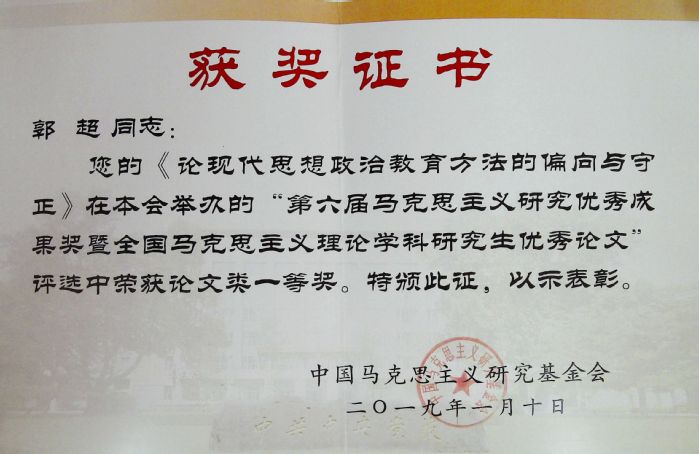 获奖证书
郭 超 同志：
您的《论现代思想政治教育方法的偏向与守
正》在本会举办的“第六届马克思主义研究优秀成
果奖暨全国马克思主义理论学科研究生优秀论文”
评选中荣获论文类一等奖。特颁此证，以示表彰。
中国马克思主义研究基金会
二〇一九年一月十日
中国马克思主义研究基金会